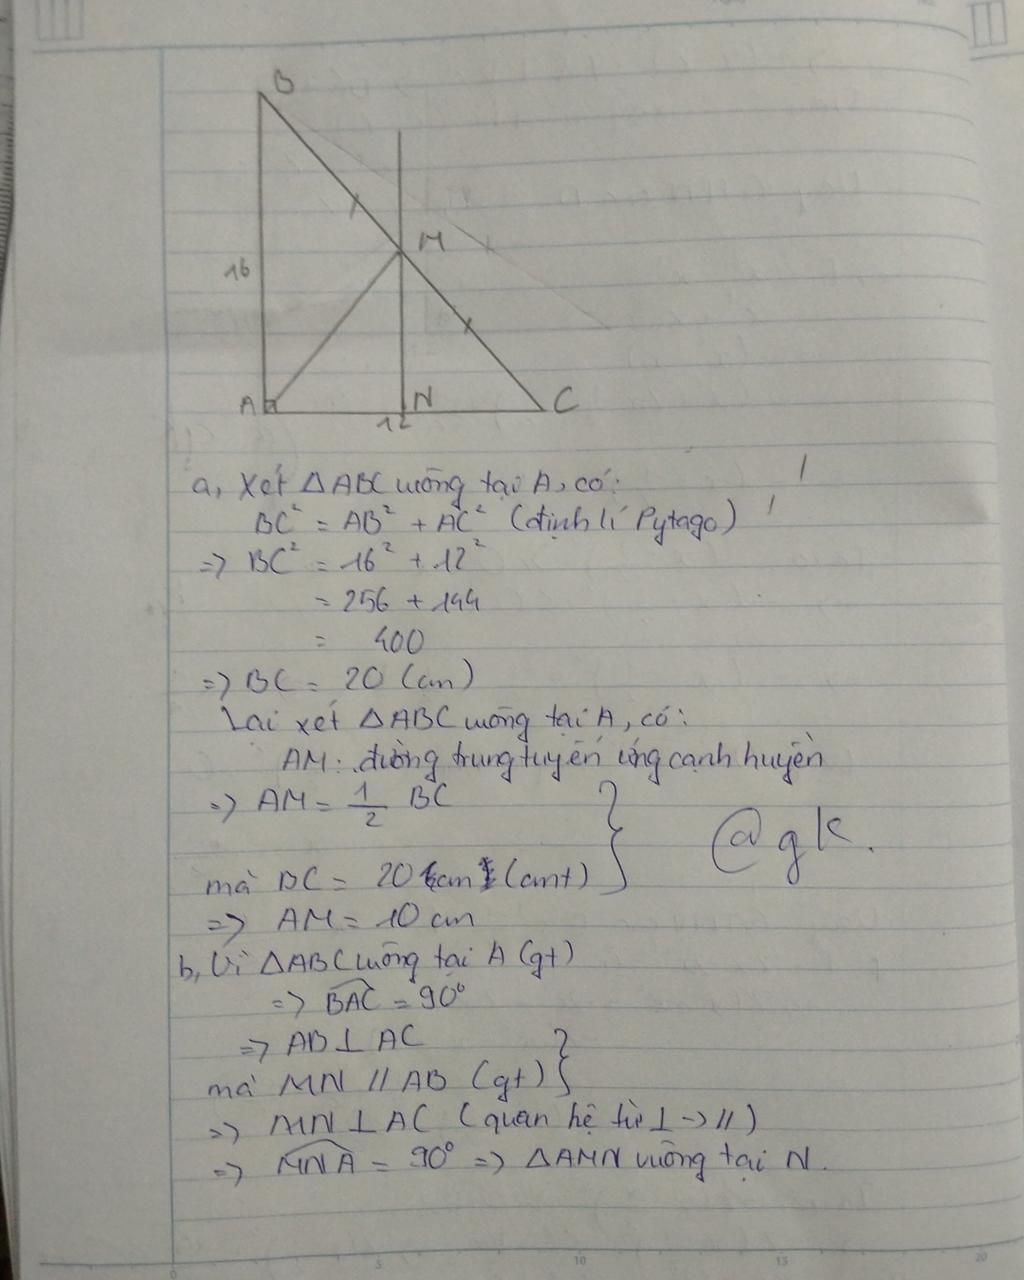 B
M
16
A
N
C
12
a, Xét ΔABC vuông tại A, có:
BC² = AB² + AC² (định lí Pytago)
=> BC² = 16² + 12²
= 256 + 144
= 400
=> BC = 20 (cm)
Lại xét ΔABC vuông tại A, có:
AM: đường trung tuyến ứng cạnh huyền
=> AM = 1/2 BC
@gk.
mà BC = 20 cm (cmt)
=> AM = 10 cm
b, Vì ΔABC vuông tại A (gt)
=> BAC = 90°
=> AB ⊥ AC
mà MN // AB (gt)
=> MN ⊥ AC (quan hệ từ ⊥ -> //)
=> MNA = 90° => ΔAMN vuông tại N.
0 5 10 15 20